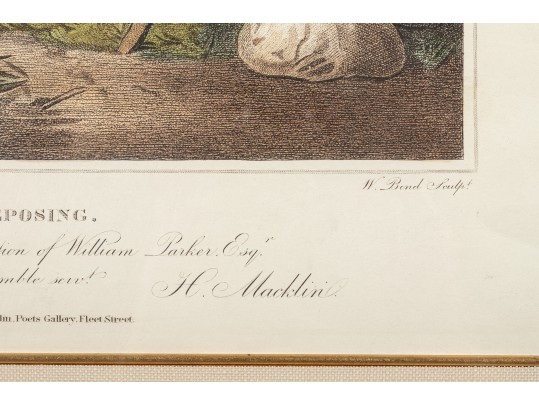 W. Bond Sculpt.
EPOSING.
of William Parker Esqr.
mble servt.
H. Macklin
Poets Gallery, Fleet Street.